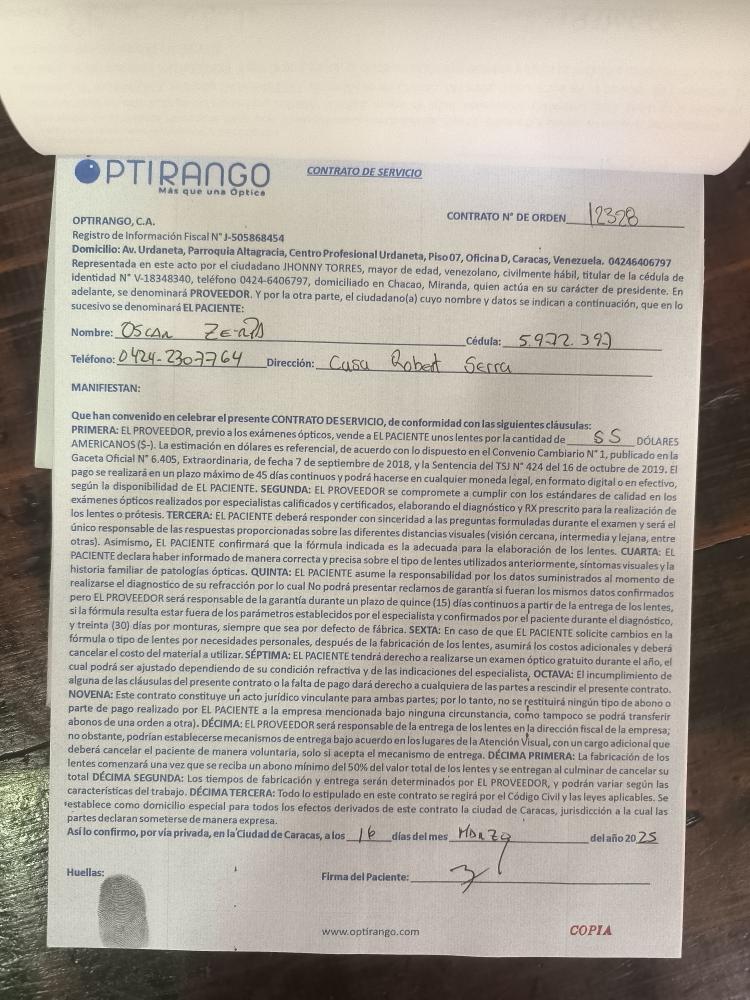 OPTIRANGO
Más que una Óptica
CONTRATO DE SERVICIO
CONTRATO N° DE ORDEN 12328
OPTIRANGO, C.A.
Registro de Información Fiscal N° J-505868454
Domicilio: Av. Urdaneta, Parroquia Altagracia, Centro Profesional Urdaneta, Piso 07, Oficina D, Caracas, Venezuela. 04246406797
Representada en este acto por el ciudadano JHONNY TORRES, mayor de edad, venezolano, civilmente hábil, titular de la cédula de
identidad N° V-18348340, teléfono 0424-6406797, domiciliado en Chacao, Miranda, quien actúa en su carácter de presidente. En
adelante, se denominará PROVEEDOR. Y por la otra parte, el ciudadano(a) cuyo nombre y datos se indican a continuación, que en lo
sucesivo se denominará EL PACIENTE:
Nombre: Oscar Cédula: 5.972.397
Teléfono: 0424-2307764 Dirección: Casa Robert Serra
MANIFIESTAN:
Que han convenido en celebrar el presente CONTRATO DE SERVICIO, de conformidad con las siguientes cláusulas:
PRIMERA: EL PROVEEDOR, previo a los exámenes ópticos, vende a EL PACIENTE unos lentes por la cantidad de 55 DÓLARES
AMERICANOS ($-). La estimación en dólares es referencial, de acuerdo con lo dispuesto en el Convenio Cambiario N° 1, publicado en la
Gaceta Oficial N° 6.405, Extraordinaria, de fecha 7 de septiembre de 2018, y la Sentencia del TSJ N° 424 del 16 de octubre de 2019. El
pago se realizará en un plazo máximo de 45 días continuos y podrá hacerse en cualquier moneda legal, en formato digital o en efectivo,
según la disponibilidad de EL PACIENTE. SEGUNDA: EL PROVEEDOR se compromete a cumplir con los estándares de calidad en los
exámenes ópticos realizados por especialistas calificados y certificados, elaborando el diagnóstico y RX prescrito para la realización de
los lentes o prótesis. TERCERA: EL PACIENTE deberá responder con sinceridad a las preguntas formuladas durante el examen y será el
único responsable de las respuestas proporcionadas sobre las diferentes distancias visuales (visión cercana, intermedia y lejana, entre
otras). Asimismo, EL PACIENTE confirmará que la fórmula indicada es la adecuada para la elaboración de los lentes. CUARTA: EL
PACIENTE declara haber informado de manera correcta y precisa sobre el tipo de lentes utilizados anteriormente, síntomas visuales y la
historia familiar de patologías ópticas. QUINTA: EL PACIENTE asume la responsabilidad por los datos suministrados al momento de
realizarse el diagnostico de su refracción por lo cual No podrá presentar reclamos de garantía si fueran los mismos datos confirmados
pero EL PROVEEDOR será responsable de la garantía durante un plazo de quince (15) días continuos a partir de la entrega de los lentes,
si la fórmula resulta estar fuera de los parámetros establecidos por el especialista y confirmados por el paciente durante el diagnóstico,
y treinta (30) días por monturas, siempre que sea por defecto de fábrica. SEXTA: En caso de que EL PACIENTE solicite cambios en la
fórmula o tipo de lentes por necesidades personales, después de la fabricación de los lentes, asumirá los costos adicionales y deberá
cancelar el costo del material a utilizar. SÉPTIMA: EL PACIENTE tendrá derecho a realizarse un examen óptico gratuito durante el año, el
cual podrá ser ajustado dependiendo de su condición refractiva y de las indicaciones del especialista, OCTAVA: El incumplimiento de
alguna de las cláusulas del presente contrato o la falta de pago dará derecho a cualquiera de las partes a rescindir el presente contrato.
NOVENA: Este contrato constituye un acto jurídico vinculante para ambas partes; por lo tanto, no se restituirá ningún tipo de abono o
parte de pago realizado por EL PACIENTE a la empresa mencionada bajo ninguna circunstancia, como tampoco se podrá transferir
abonos de una orden a otra). DÉCIMA: EL PROVEEDOR será responsable de la entrega de los lentes en la dirección fiscal de la empresa;
no obstante, podrían establecerse mecanismos de entrega bajo acuerdo en los lugares de la Atención Visual, con un cargo adicional que
deberá cancelar el paciente de manera voluntaria, solo si acepta el mecanismo de entrega. DÉCIMA PRIMERA: La fabricación de los
lentes comenzará una vez que se reciba un abono mínimo del 50% del valor total de los lentes y se entregan al culminar de cancelar su
total DÉCIMA SEGUNDA: Los tiempos de fabricación y entrega serán determinados por EL PROVEEDOR, y podrán variar según las
características del trabajo. DÉCIMA TERCERA: Todo lo estipulado en este contrato se regirá por el Código Civil y las leyes aplicables. Se
establece como domicilio especial para todos los efectos derivados de este contrato la ciudad de Caracas, jurisdicción a la cual las
partes declaran someterse de manera expresa.
Así lo confirmo, por vía privada, en la Ciudad de Caracas, a los 16 días del mes Marzo del año 2025
Huellas:
Firma del Paciente:
www.optirango.com
COPIA